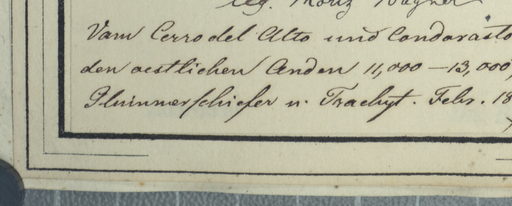 leg. Moriz Wagner
Vom Cerro del Alto und Condorasto
den oestlichen Anden 11,000 – 13,000
Glimmerschiefer u. Trachyt. Febr. 18